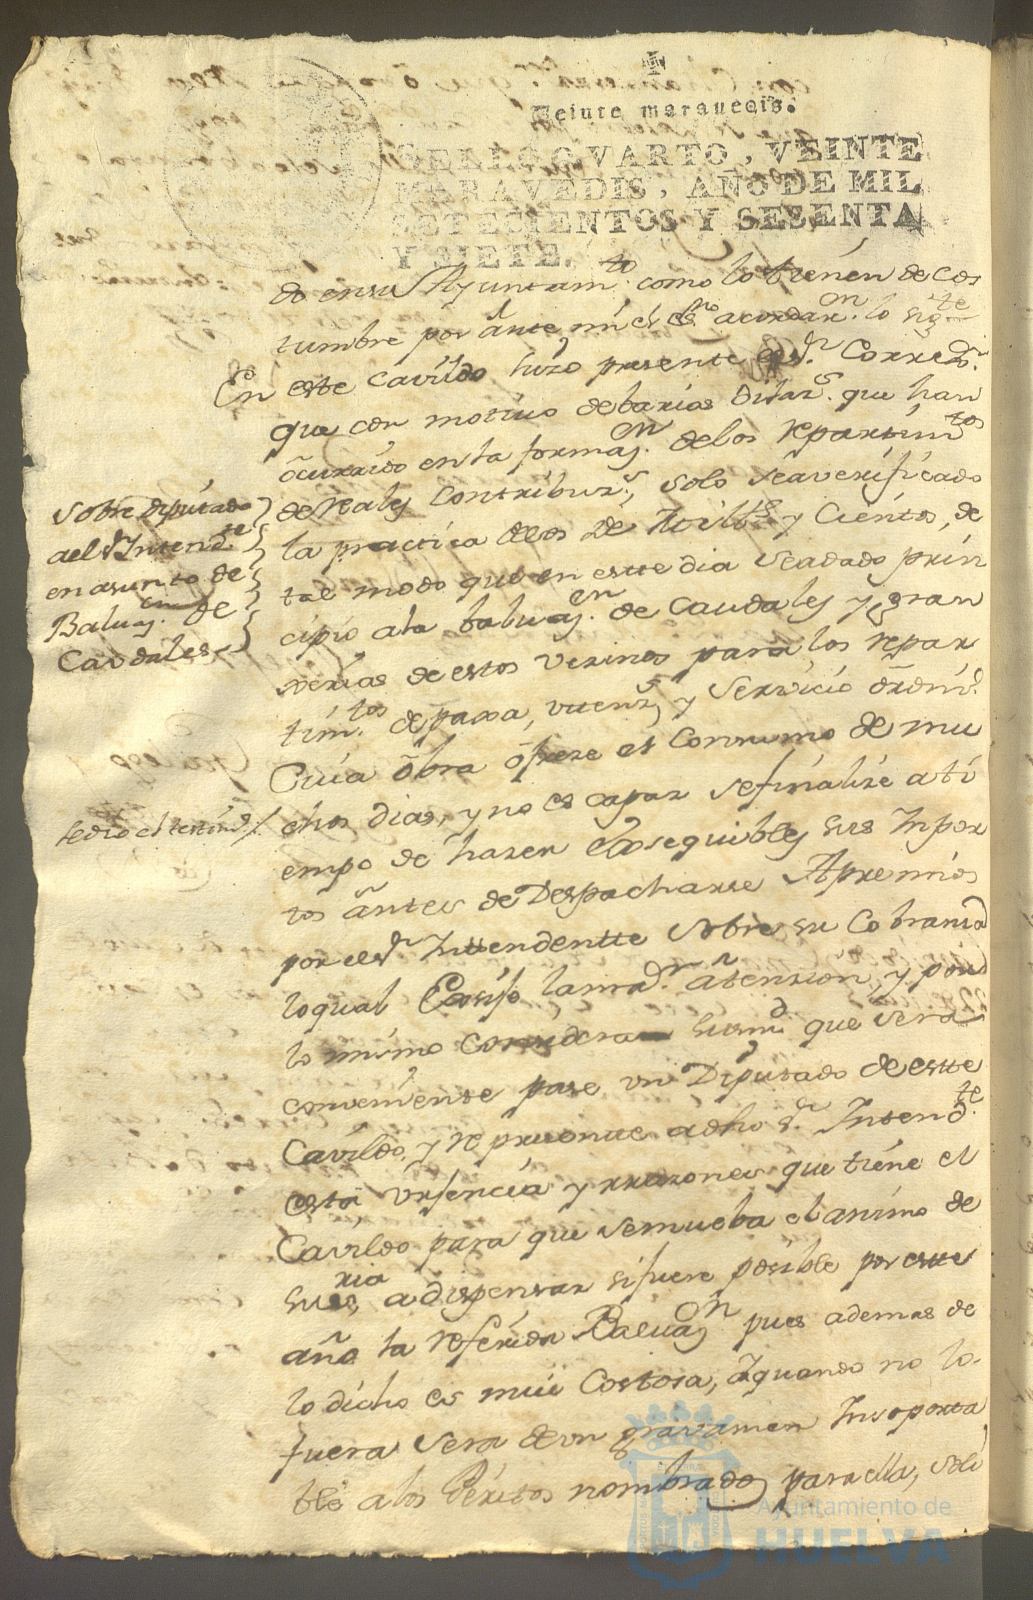 Veinte maravedis.
SELLO QVARTO, VEINTE
MARAVEDIS, AÑO DE MIL
SETECIENTOS Y SESENTA
Y SIETE.
do en su Ayuntam.to como lo tienen de cos
tumbre por ante mi el es.no acordar.n lo sig.te
En este Cavildo hizo presente el s.r Corred.r
que con motivo de barias que han
ocurrido en la formaz.on de los repartim.tos
de Reales Contribuz.s, solo se a verificado
la practica de los de Millo.s y Cientos, de
tal modo que en este dia se a dado prin
cipio a la baluaz.on de Caudales y gran
gerias de estos Vezinos para los repar
tim.tos de paxa, utenz.s y Servicio ordin.o
Cuia obra ofreze el Consumo de mu
chos dias, y no es capaz se finalize a ti
empo de hazer exsequibles sus Impor
tos antes de Despacharse Apremios
por el s.r Inttendentte sobre su Cobranza
lo qual la m.r atension, y por
lo mismo considera su m.d que sera
conveniente pase un Diputado de este
Cavildo, y represente a dho s.r Intend.te
esta urgencia y rrazones que tiene el
Cavildo para que se mueba el animo de
su s.ria a dispensar si fuere posible por este
año la referida Baluaz.on pues ademas de
lo dicho es mui Costosa, y quando no lo
fuera sera de un gravamen Insoporta
ble a los Peritos nombrados para ella, soli
Sobre diputado
al s.r Intend.te
en asunto de
Baluaz.on de
Caudales
se dio el testim.o
Ayuntamiento de
HUELVA